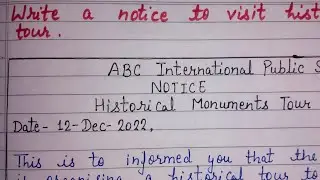 Write a notice to visit hist
tour.
ABC International Public S
NOTICE
Historical Monuments Tour
Date- 12-Dec-2022.
This is to informed you that the
is organising a historical tour to